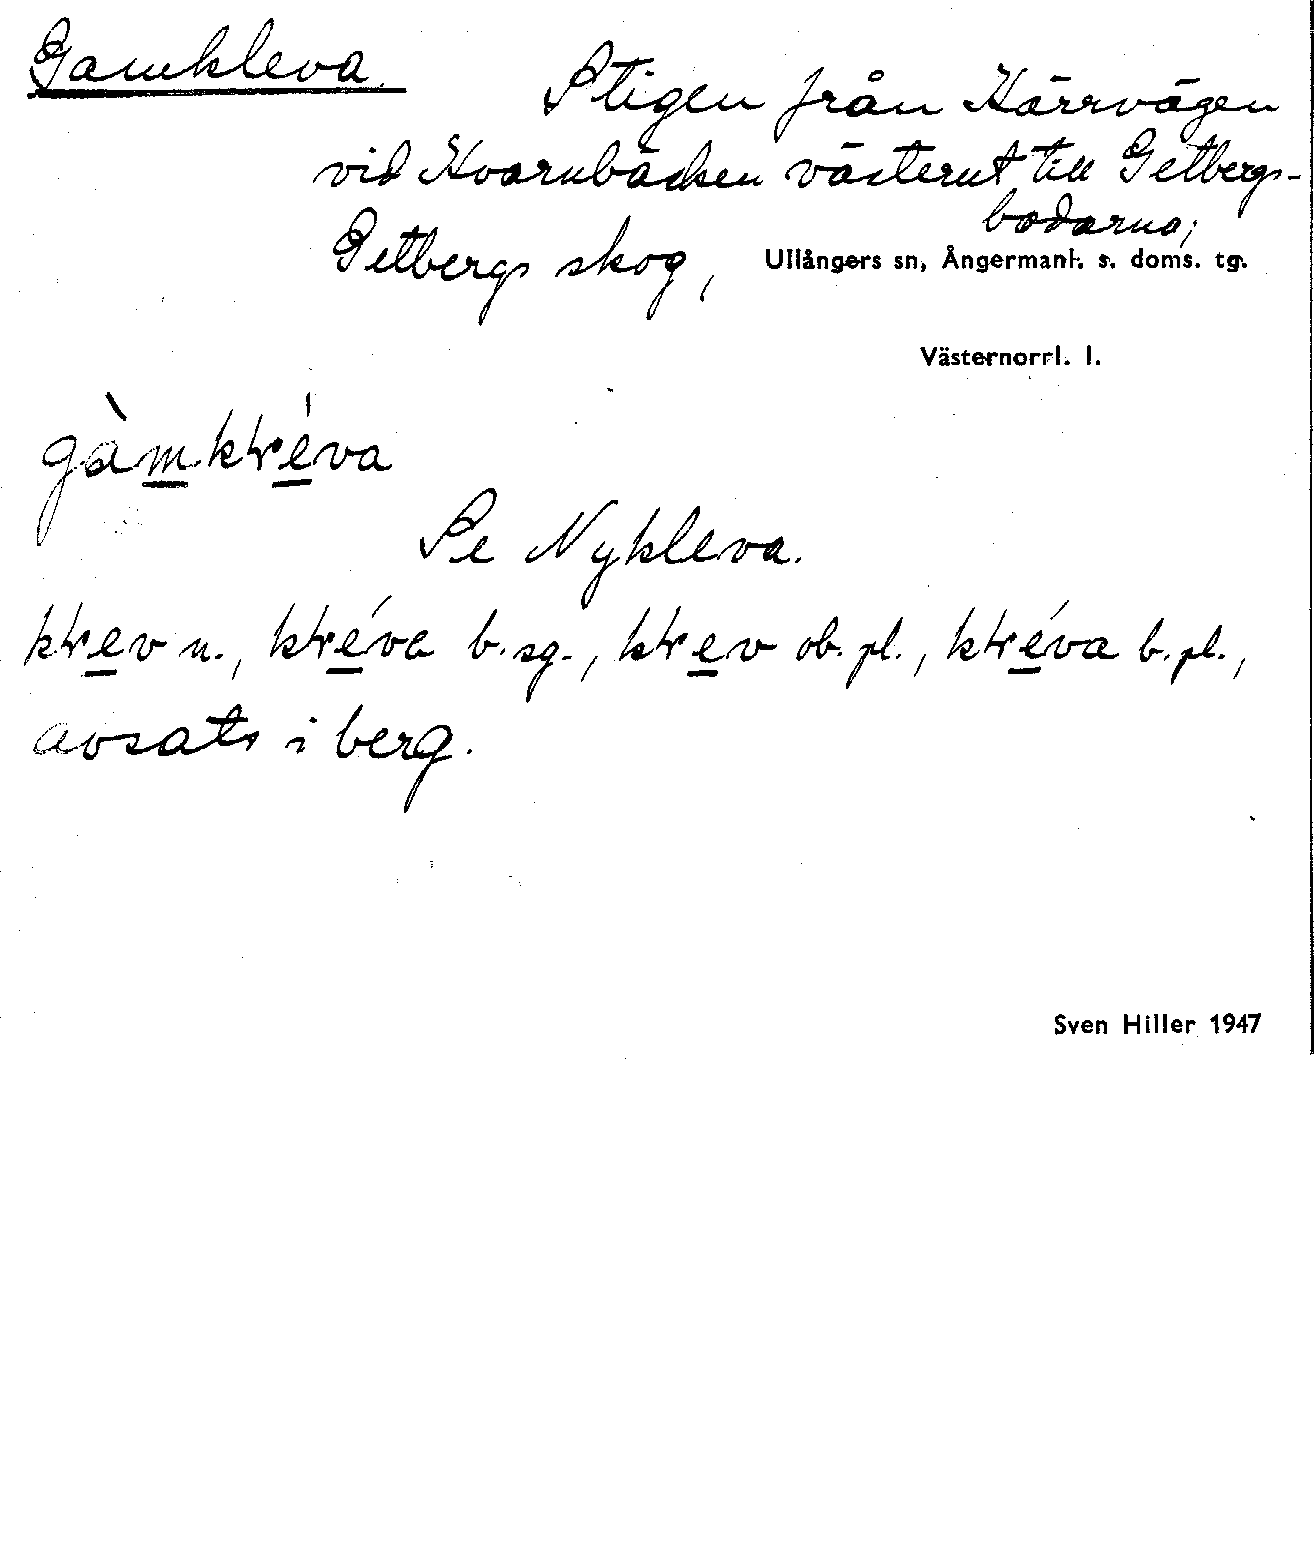 Gamkleva.
Stigen från Kärrvägen
vid Kvarnbäcken västerut till Getbergs-
bodarna,
Getbergs skog, Ullångers sn, Ångermanl. s. doms. tg.
Västernorrl. l.
Se Nykleva.
n., b. sg., ob. pl., b. pl.,
avsats i berg.
Sven Hiller 1947